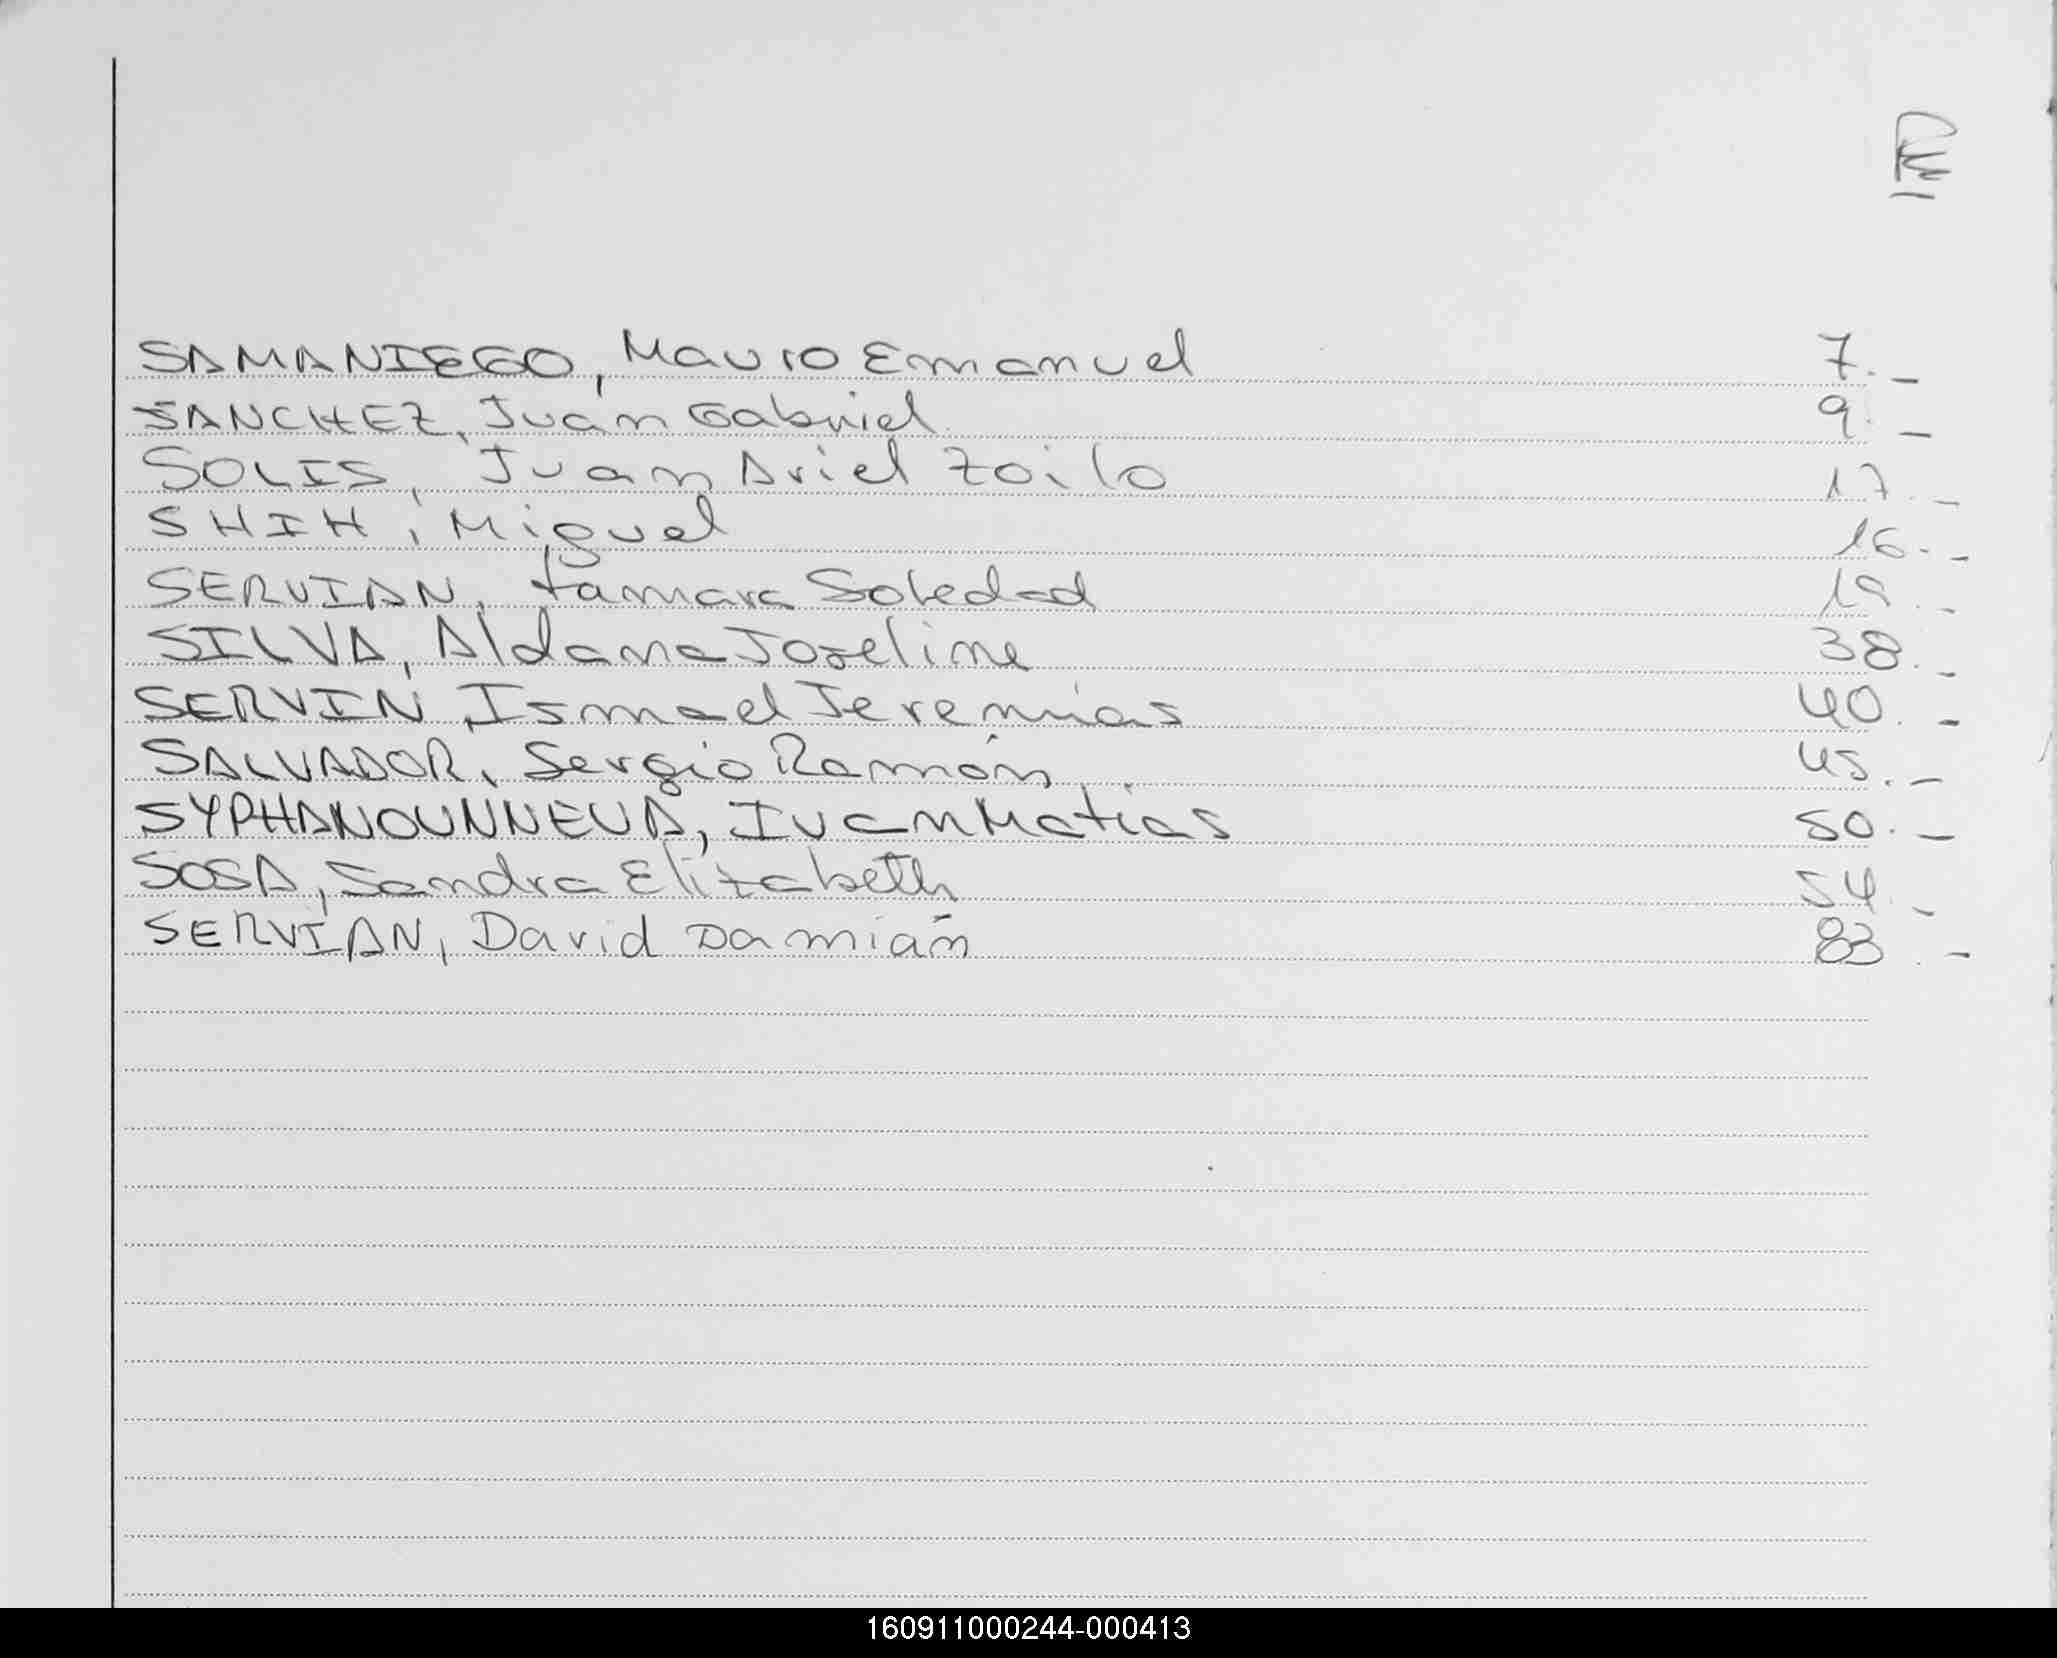 SAMANIEGO, Mauro Emanuel 7.-
SANCHEZ, Juan Gabriel 9.-
SOLIS, Juan Ariel Zoilo 17.-
SHIH, Miguel 16.-
SERVIAN, Tamara Soledad 19.-
SILVA, Aldana Joseline 38.-
SERVIN, Ismael Jeremias 40.-
SALVADOR, Sergio Ramón 45.-
SYPHANOUNNEUA, Ivan Matias 50.-
SOSA, Sandra Elizabeth 54.-
SERVIAN, David Damián 83.-
160911000244-000413